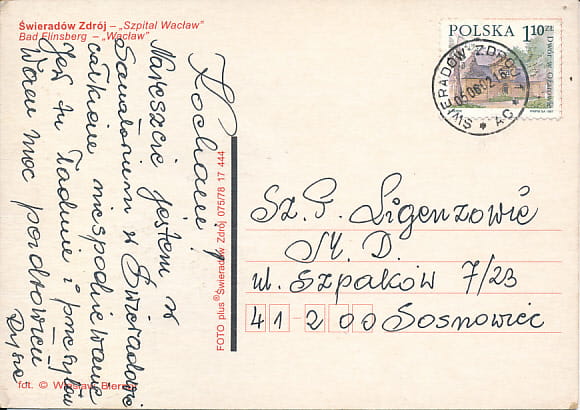 Świeradów Zdrój – „Szpital Wacław"
Bad Flinsberg – „Wacław"
Kochani!
Nareszcie jestem w
Sanatorium w Świeradowie
całkiem niespodziewanie
Jest tu ładnie i przesyłam
Wam moc pozdrowień
fot. © Wiesław
FOTO plus® Świeradów Zdrój 075/78 17 444
POLSKA 1,10 ZŁ
ŚWIERADÓW ZDRÓJ 1
AC
Sz. P. Ligenzowie
M. D.
ul. Szpaków 7/23
41-200 Sosnowiec